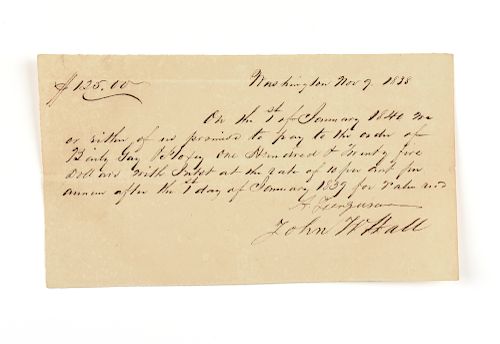 $125.00 Washington Nov 9. 1838
On the 1st of January 1840 we
or either of us promise to pay to the order of
One Hundred & Twenty five
dollars with Intst at the rate of 10 per cent per
annum after the 1 day of January 1839 for value recd
Ferguson
John W Hall